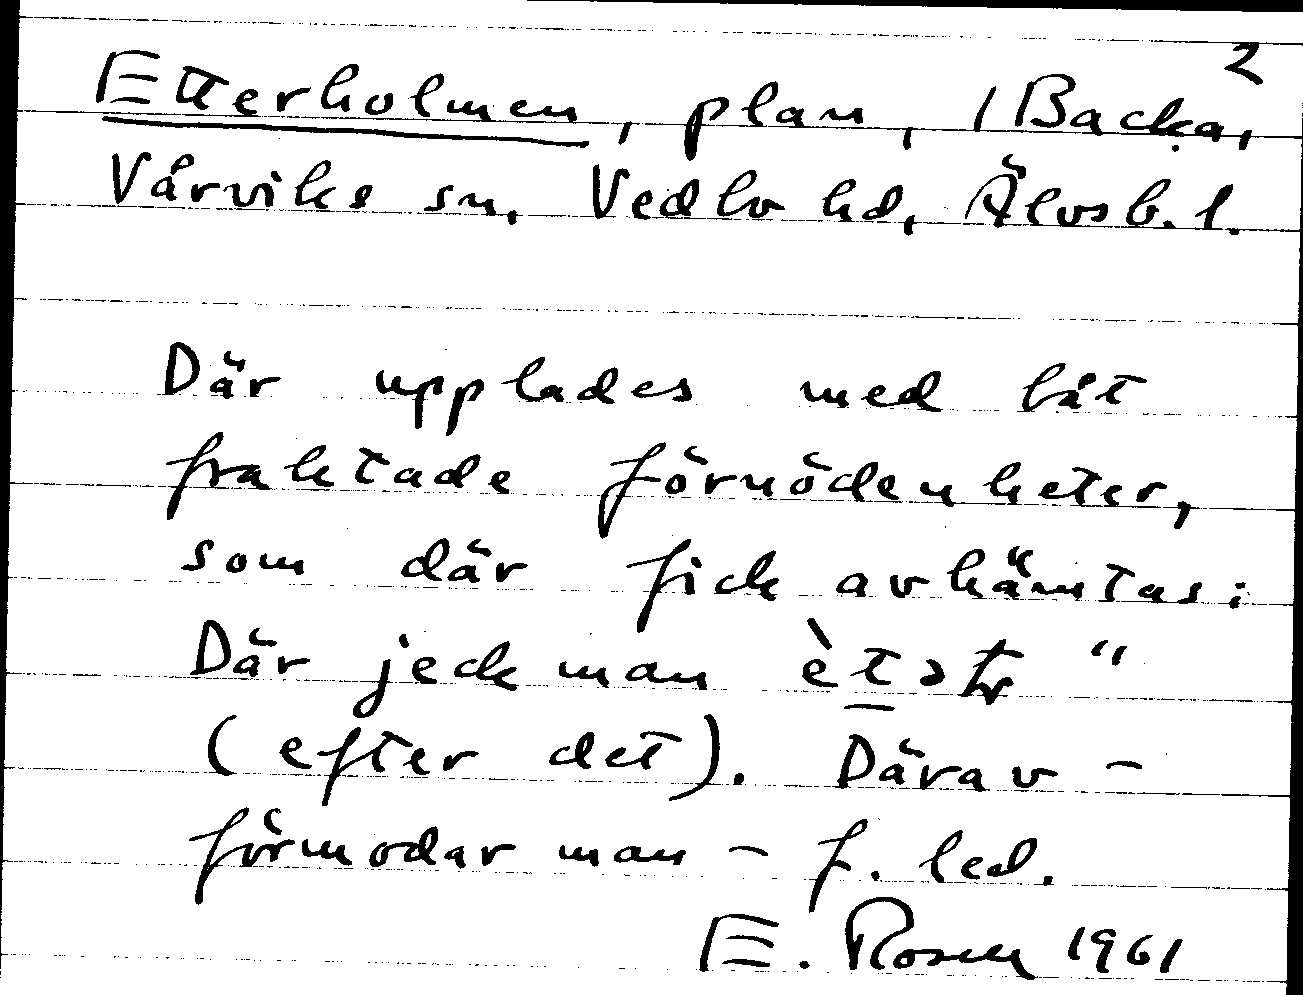 2
Etterholmen, plan, 1 Backa,
Vårviks sn, Vedbo hd, Älvsb. l.
Där upplades med båt
fraktade förnödenheter,
som där fick avhämtas:
Där jeck man "
(efter det). Därav -
förmodar man - f. led.
E. Rosen 1961